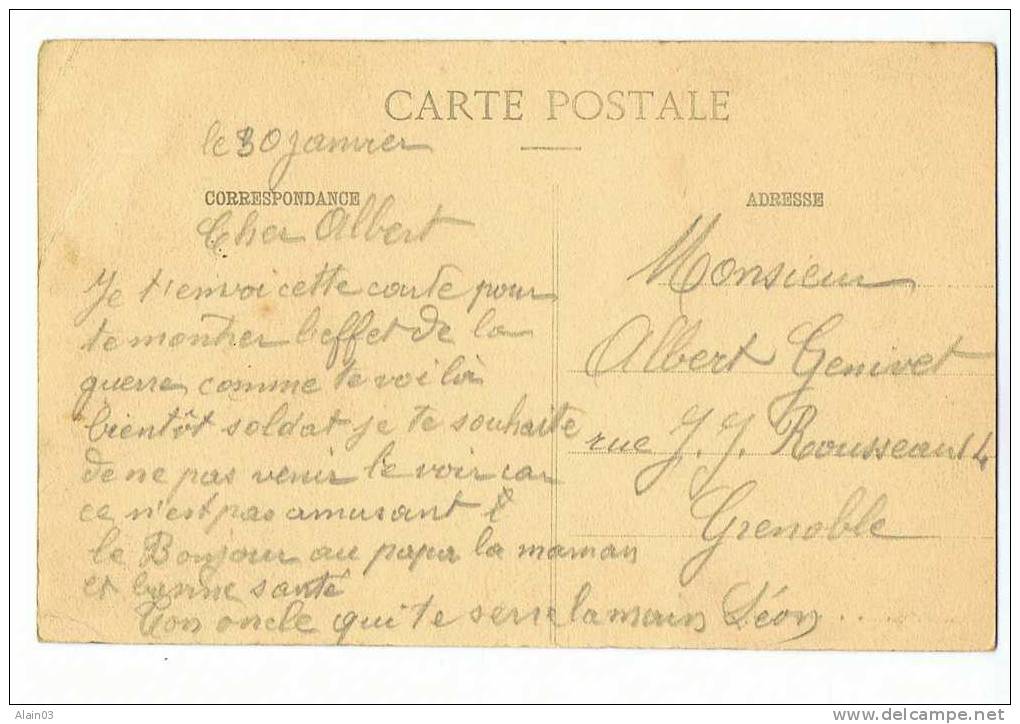 CARTE POSTALE
le 30 janvier
CORRESPONDANCE
Cher Albert
Je t'envoi cette carte pour
te montrer l'effet de la
guerre comme te voilà
bientôt soldat je te souhaite
de ne pas venir le voir car
ce n'est pas amusant
le Bonjour au papa la maman
et bonne santé
Ton oncle qui te serre la main Léon
ADRESSE
Monsieur
Albert Genivet
rue J. J. Rousseau 14
Grenoble
Alain03
www.delcampe.net